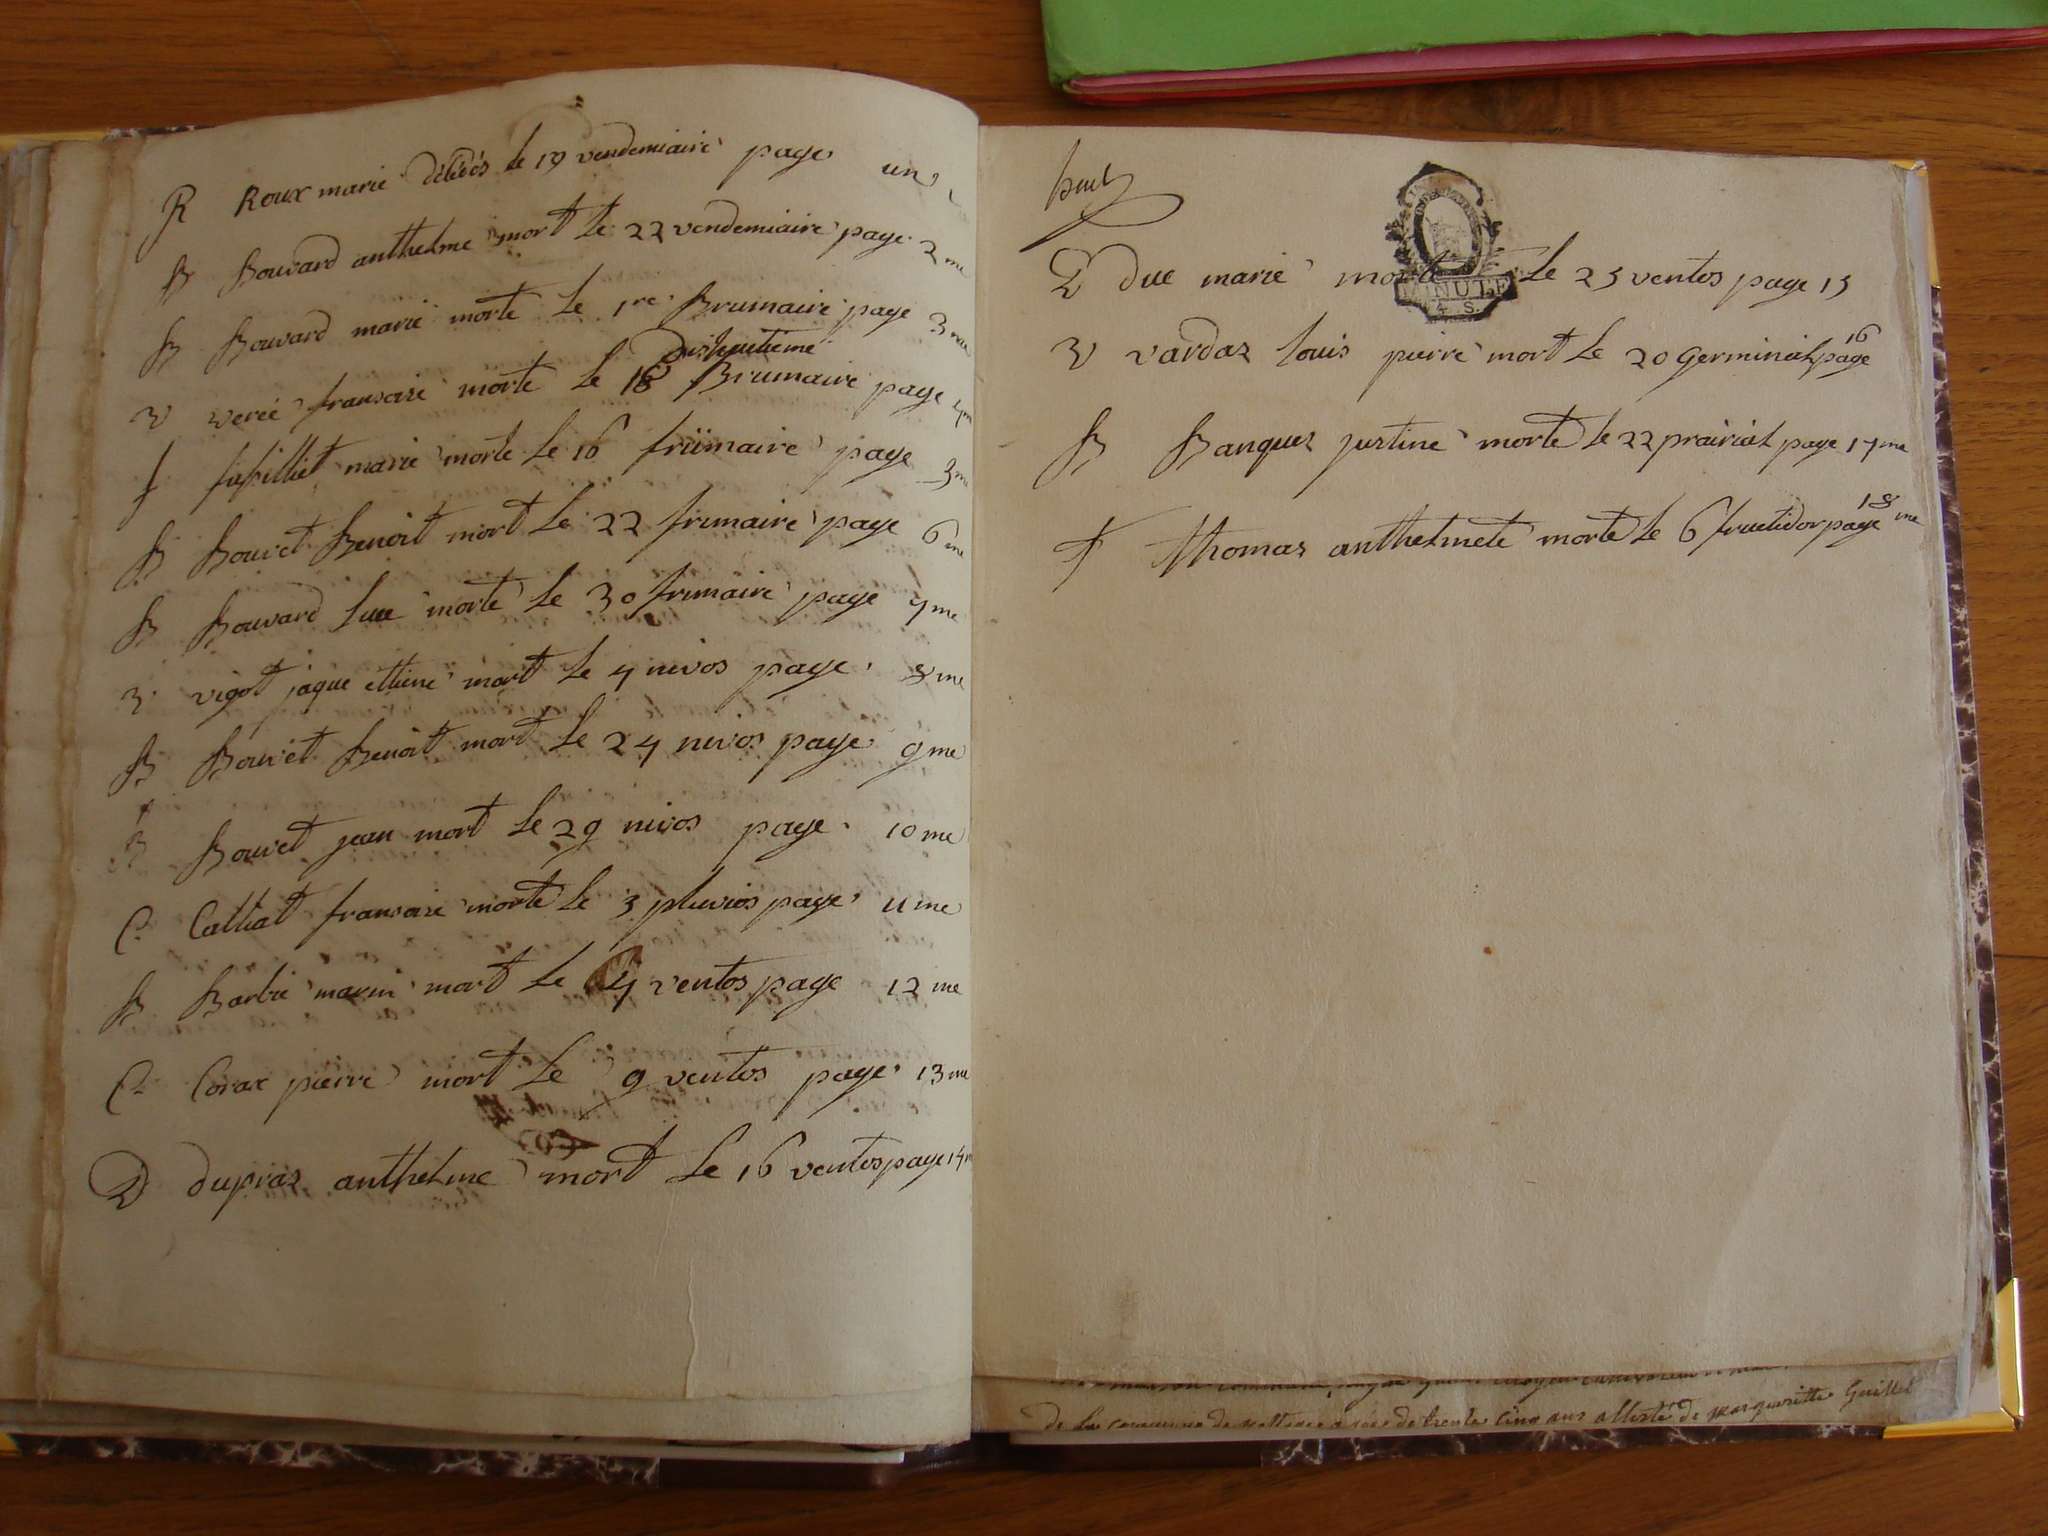 R Roux marie le 19 vendemiaire page un
B Bouvard anthelme mort le 22 vendemiaire page 2me
B Bouvard marie morte le 1re Brumaire page 3me
Dishuitieme
V verée fransoise morte le 18 Brumaire page 4m
f marie morte le 16 friimaire page
B Bouvet Benoit mort le 22 frimaire page 6me
B Bouvard morte le 30 frimaire page 7me
V vigot jaque ettiene mort le 4 nivos page 8me
B Bouvet Benoit mort le 24 nivos page 9me
B Bouvet jean mort le 29 nivos page 10me
C Calliat fransoise morte le 3 pluvios page 11me
B Barbié mort le 4 ventos page 12me
C Corax pierre mort le 9 ventos page 13me
D dupraz anthelme mort le 16 ventos page 14m
MINUTE
4 S.
D duc marie le 25 ventos page 15
V vardaz louis pierre mort le 20 Germinial page 16
B Banquez justine morte le 22 prairial page 17me
T thomas anthelmete morte le 6 fructidor page 18me
de la commune de de trente cinq ans de Guillet